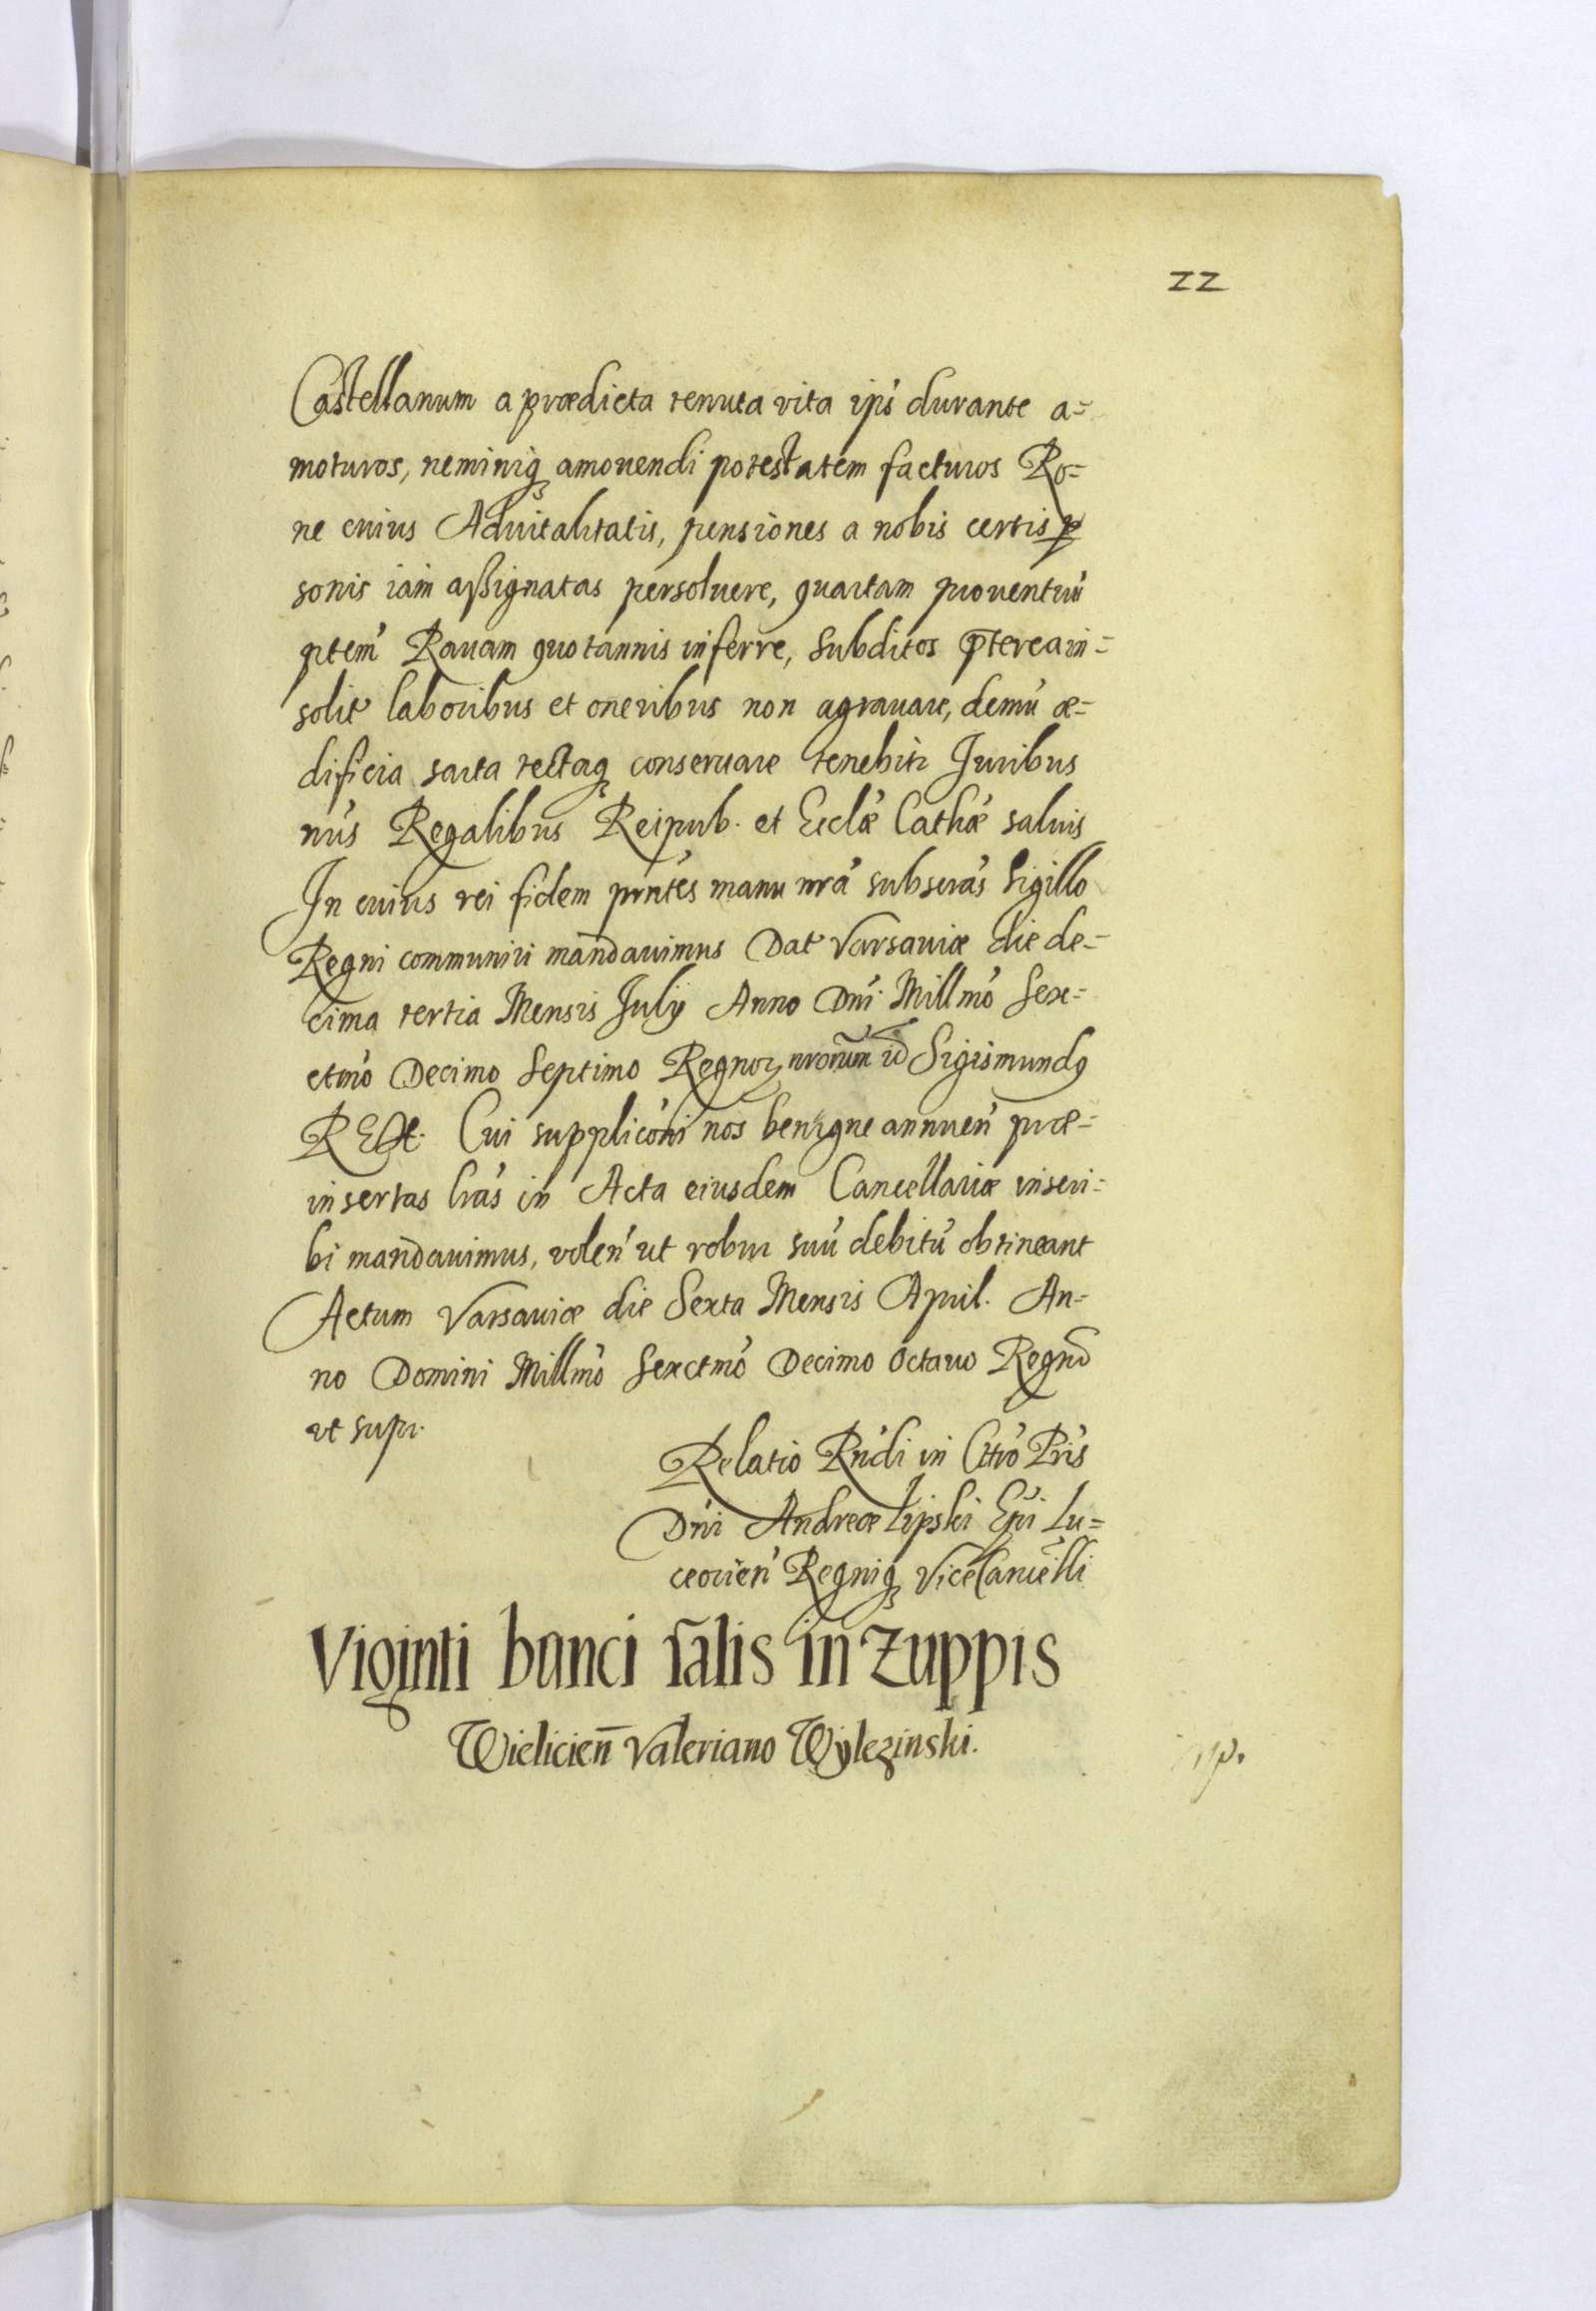 22
Castellanum a prædicta tenuta vita ips' durante a=
moturos, neminiq₃ amouendi potestatem facturos Ro=
ne cuius Aduitalitatis, pensiones a nobis certis ꝑ
sonis iam assignatas persoluere, quartam prouentuũ
ptem' Rauam quotannis inferre, subditos p̄terea in=
solit' laboribus et oneribus non agrauare, demũ æ=
dificia sarta tectaq₃ conseruare tenebitr Juribus
nr̃is Regalibus Reipub. et Eccl'æ Cath'æ saluis
In cuius rei fidem pnt'es manu nr'a subscr'as Sigillo
Regni communiri mandauimus Dat' Varsauiæ die de=
cima tertia Mensis Julij Anno Dn'i Mill'mo Sex=
ctm'o Decimo Septimo Regnoꝝ nrorum id Sigismundꝯ
REX. Cui supplic'oni nos benigne annuen' præ=
insertas l'ras in Acta eiusdem Cancellariæ inscri=
bi mandauimus, volen' ut robur suũ debitũ obtineant
Actum Varsauiæ die Sexta Mensis April. An=
no Domini Mill'mo Sexctm'o Decimo Octauo Regno
ut supr.
Relatio Rn'di in Chr'o Pr'is
Dn'i Andreæ Lipski Ep'i Lu=
ceorien' Regniq₃ ViceCancelli
Viginti banci salis in Zuppis
Wielicien̄ Valeriano Wÿlezinski.